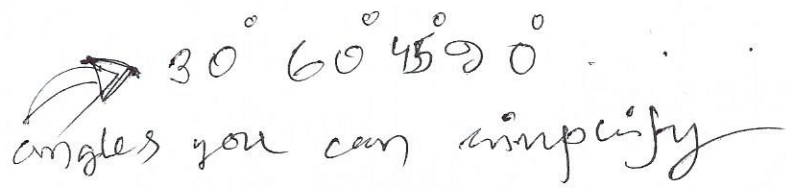 30° 60° 45° 90° . . .
angles you can simplify